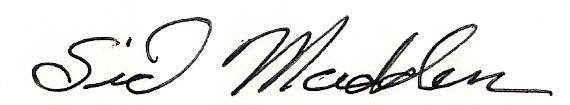 Sid Madden